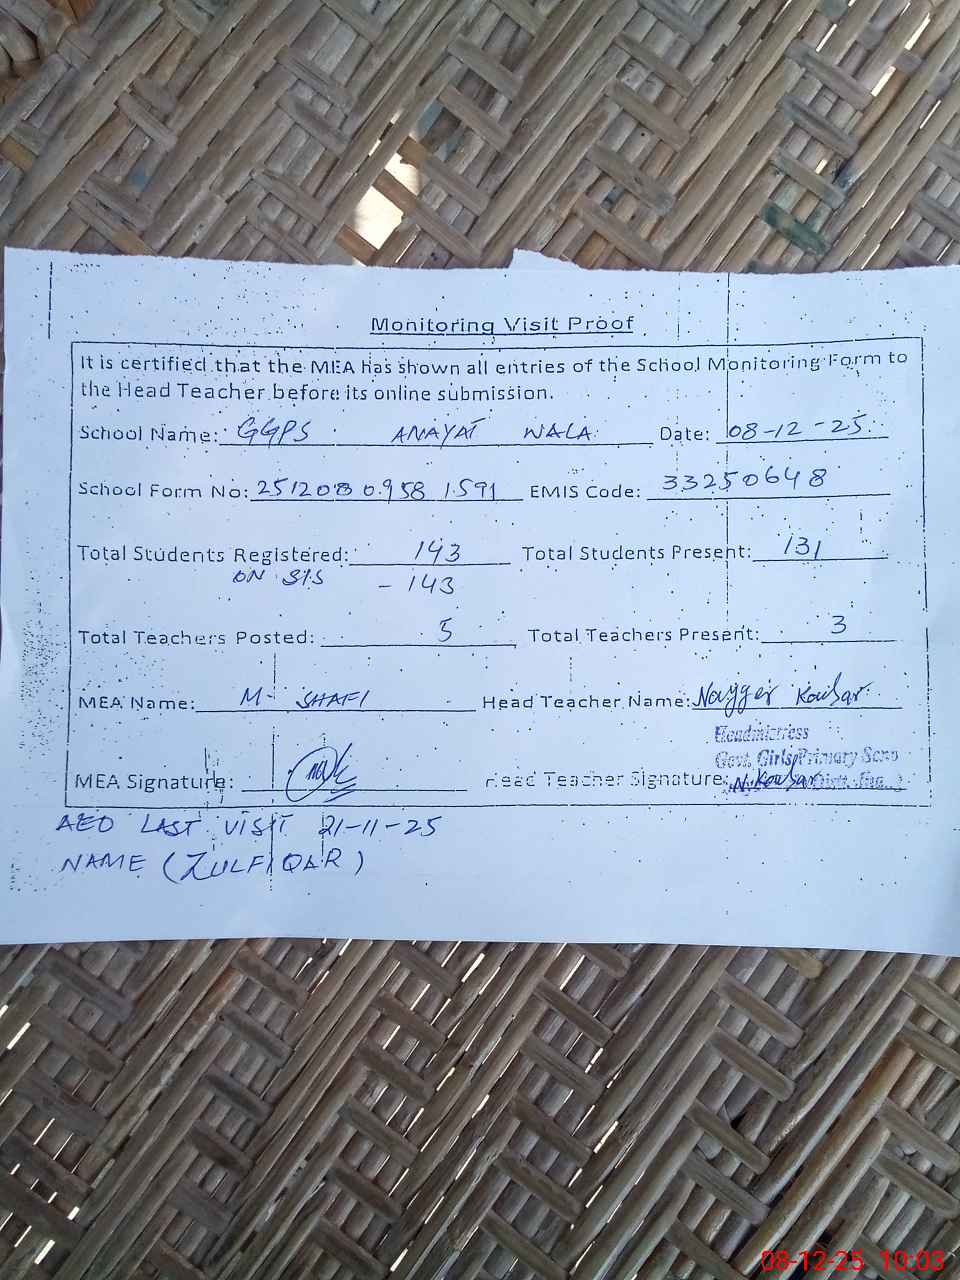 Monitoring Visit Proof
It is certified that the MEA has shown all entries of the School Monitoring Form to
the Head Teacher before its online submission.
School Name: GGPS ANAYAT WALA Date: 08-12-25
School Form No: 251208 0958 1591 EMIS Code: 33250648
Total Students Registered: 143 Total Students Present: 131
ON SIS - 143
Total Teachers Posted: 5 Total Teachers Present: 3
MEA Name: M. SHAFI Head Teacher Name: Nayyer Kousar
Headmistress
Govt. Girls Primary
MEA Signature: Head Teacher Signature: N. Kousar
AEO LAST VISIT 21-11-25
NAME (ZULFIQAR)
08-12-25 10:03